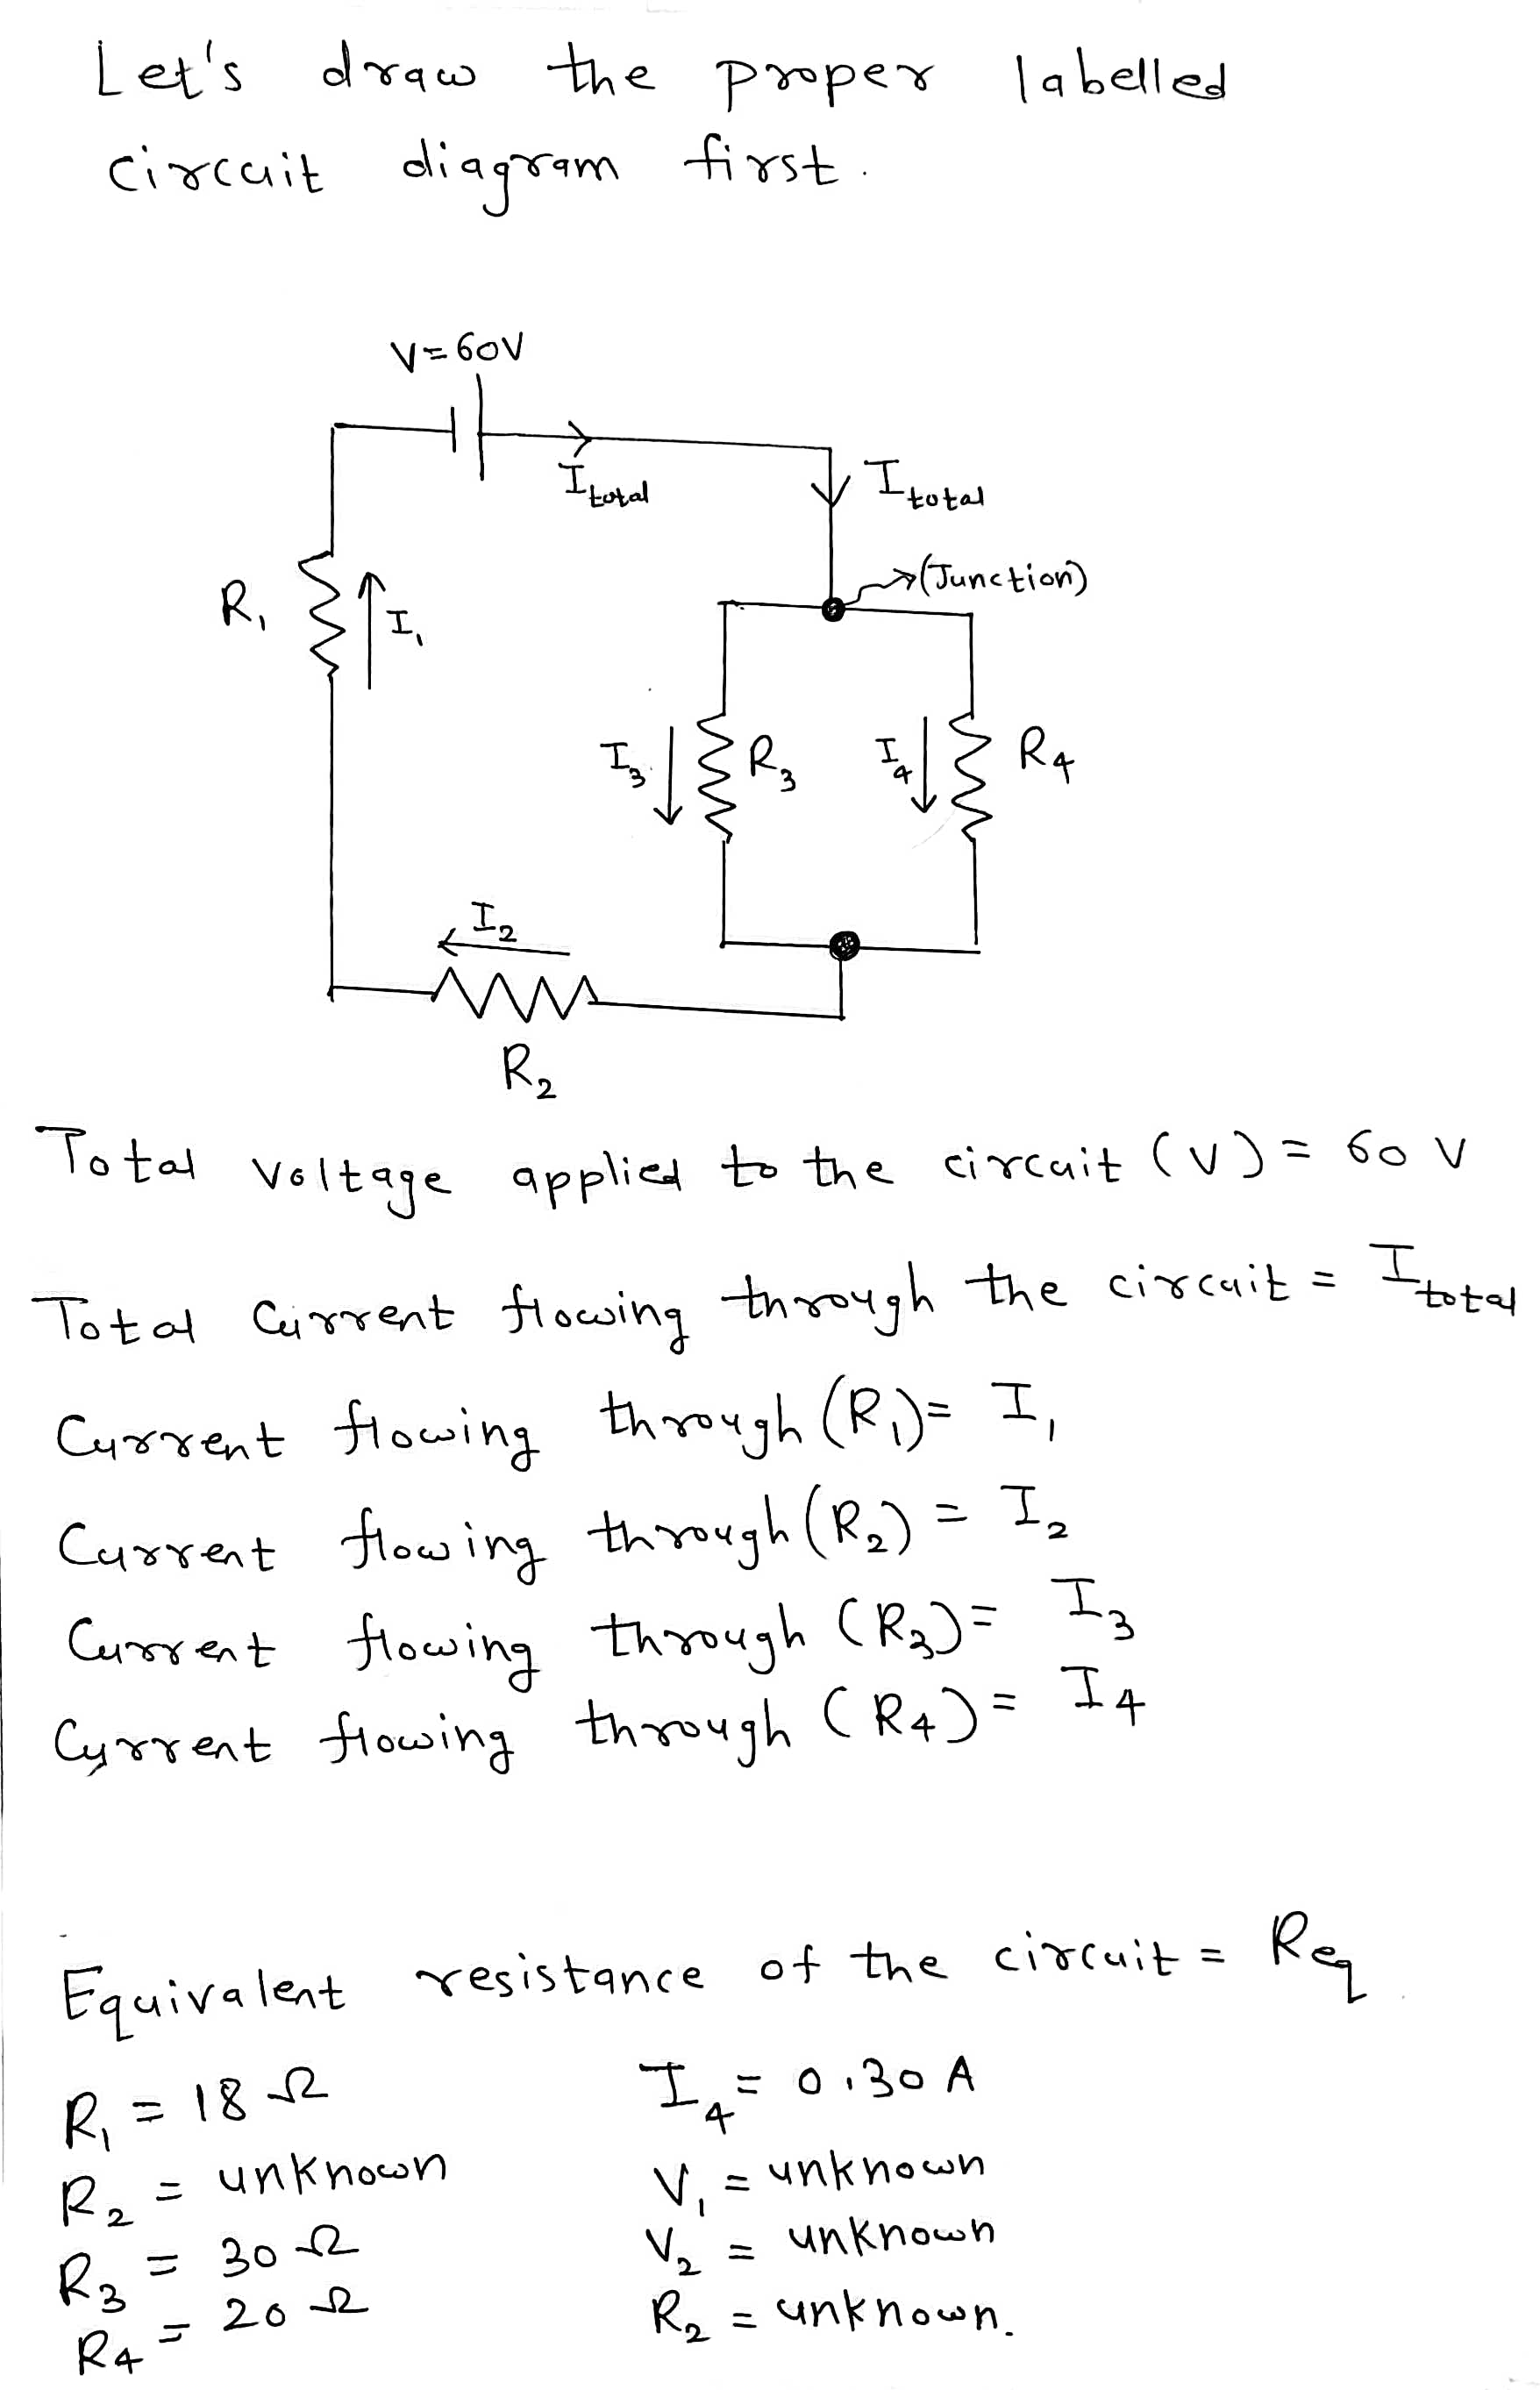 Let's draw the proper labelled
circuit diagram first.
V=60V
I total
I total
(Junction)
R1
I1
I3
R3
I4
R4
I2
R2
Total voltage applied to the circuit (V) = 60 V
Total Current flowing through the circuit = I total
Current flowing through (R1) = I1
Current flowing through (R2) = I2
Current flowing through (R3) = I3
Current flowing through (R4) = I4
Equivalent resistance of the circuit = Req
R1 = 18 Ω
I4 = 0.30 A
R2 = unknown
V1 = unknown
R3 = 30 Ω
V2 = unknown
R4 = 20 Ω
R2 = unknown.